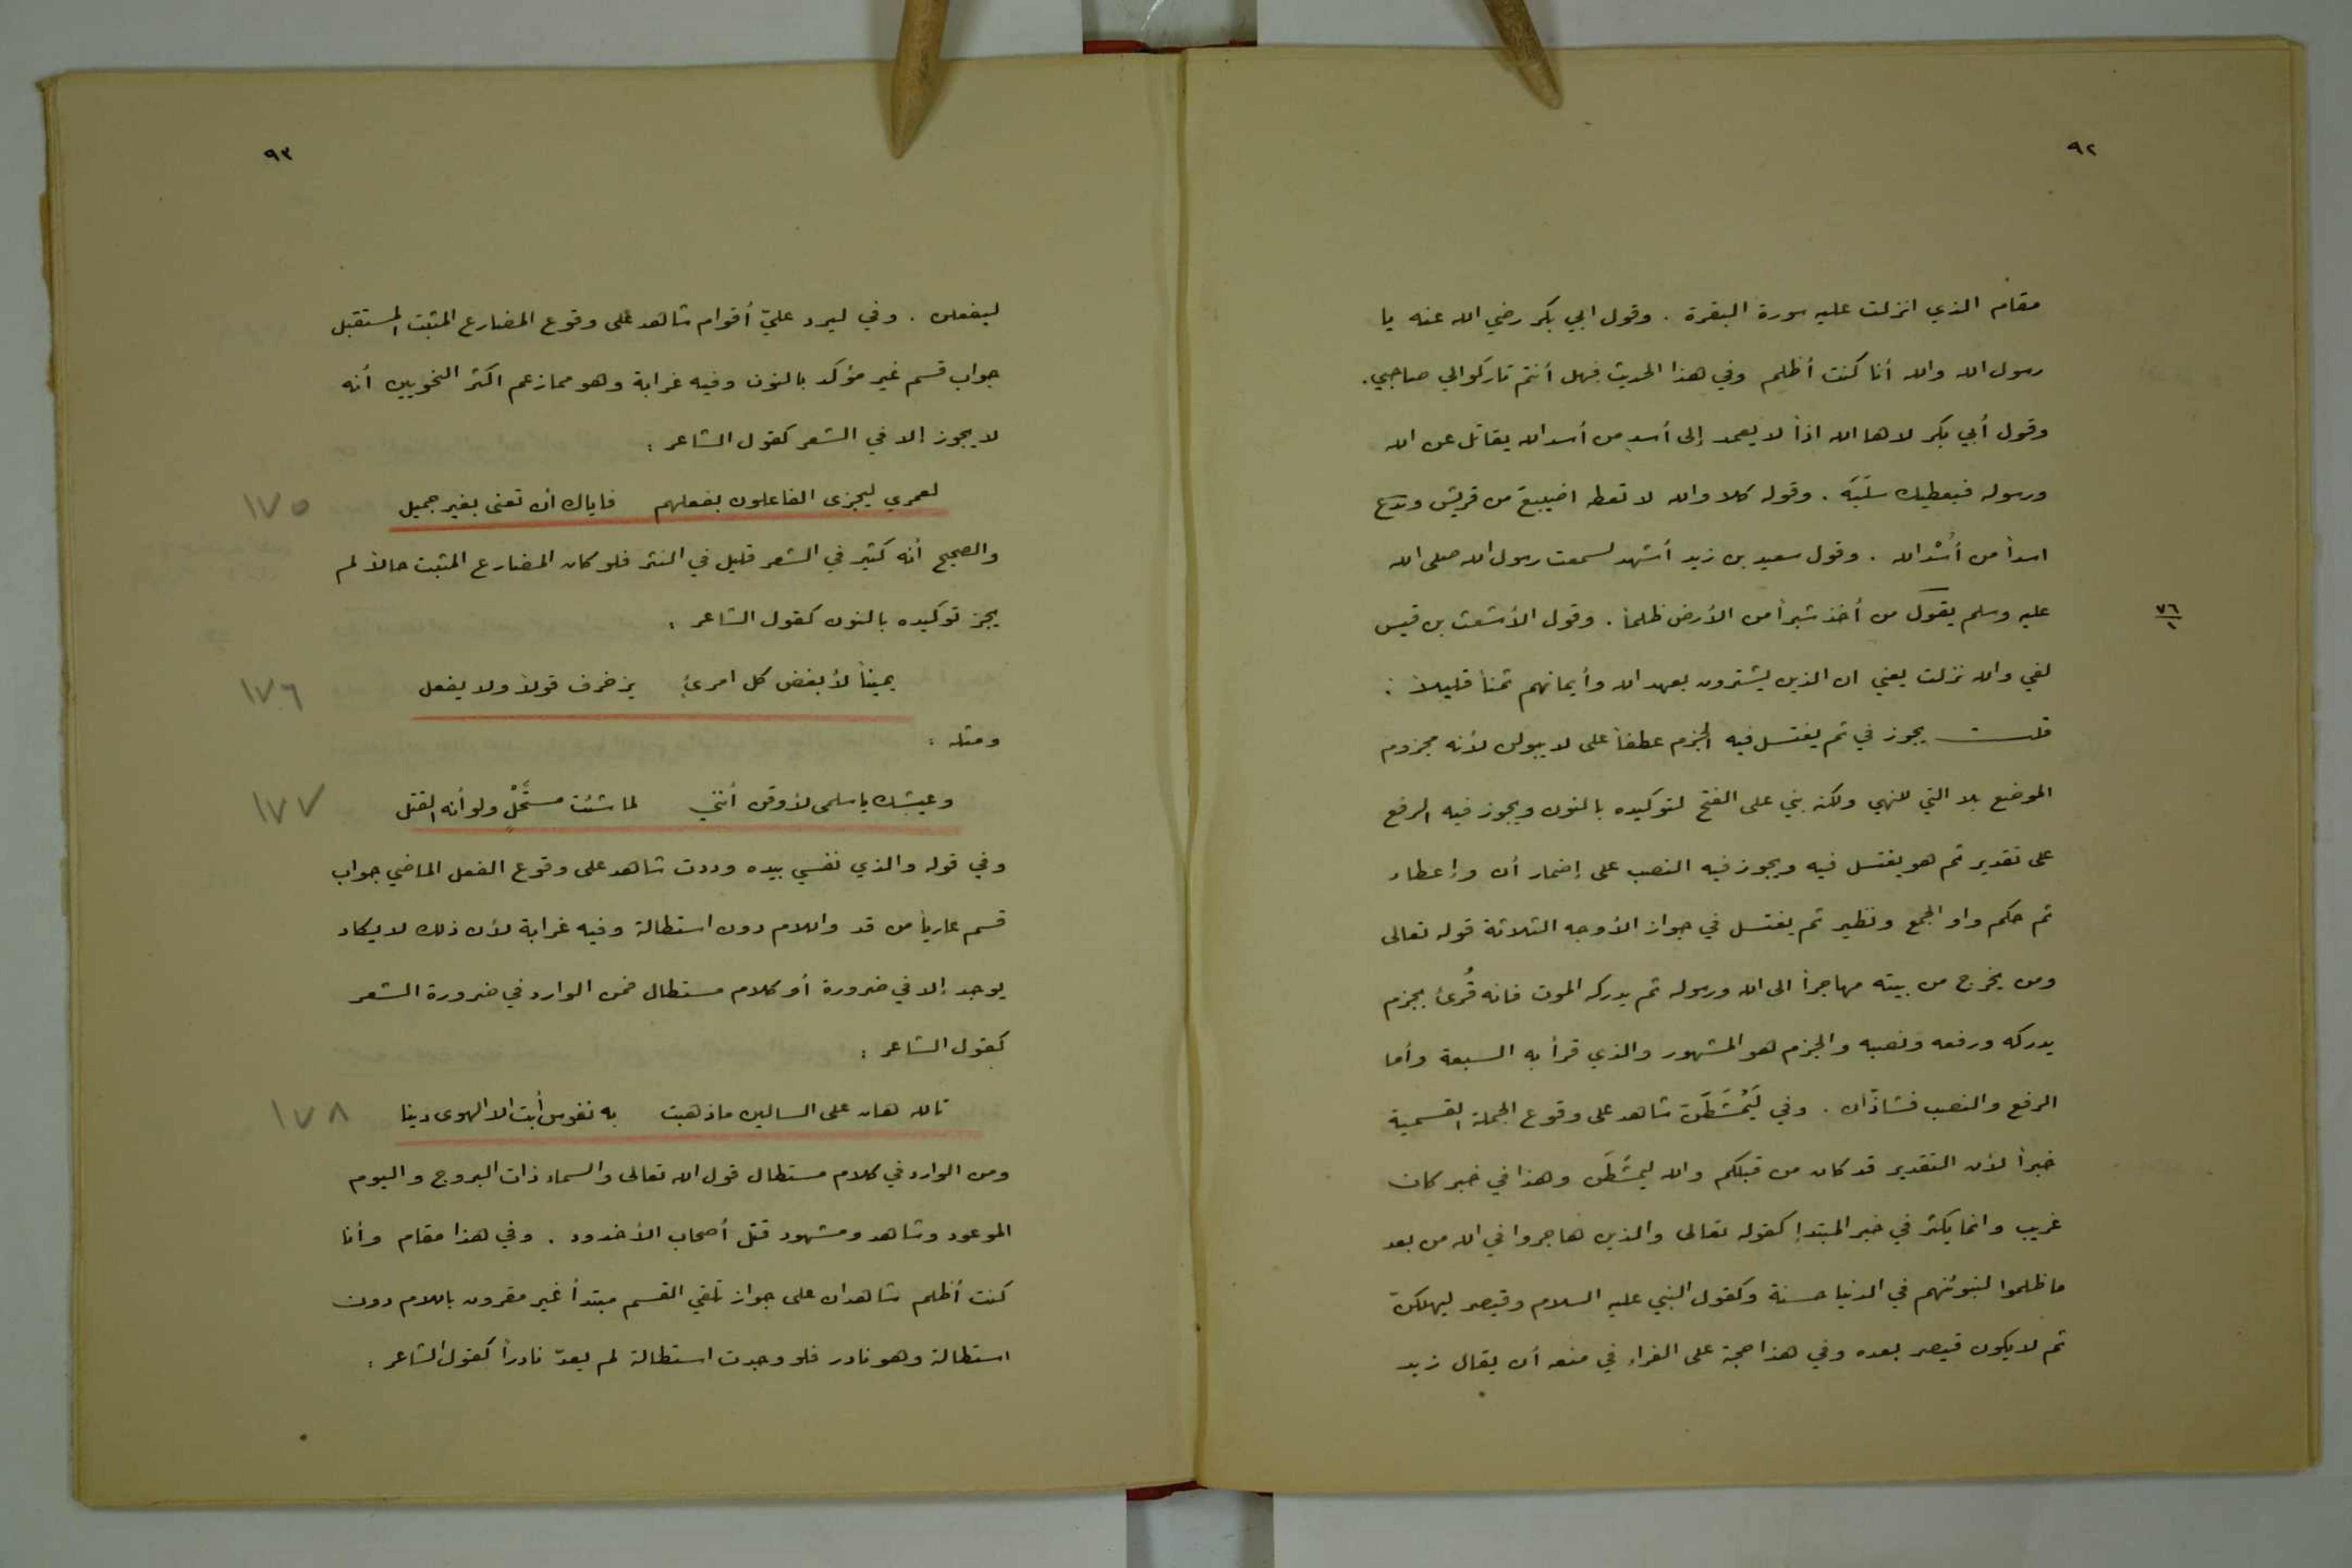 ٩٢
مقام الذي انزلت عليه سورة البقرة . وقول ابي بكر رضي الله عنه يا
رسول الله والله أنا كنت أظلم وفي هذا الحديث فهل أنتم تاركوا لي صاحبي .
وقول أبي بكر لاها الله اذاً لا يعمد إلى أسد من أسد الله يقاتل عن الله
ورسوله فيعطيك سلَبَه . وقوله كلا والله لا تعطه اضيبيع من قريش وتدع
اسداً من أُسْد الله . وقول سعيد بن زيد أشهد لسمعت رسول الله صلى الله
عليه وسلم يقول من أخذ شبراً من الأرض ظلماً . وقول الأشعث بن قيس
٧٦
١
لفي والله نزلت يعني ان الذين يشترون بعهد الله وأيمانهم ثمناً قليلاً :
قلت يجوز في ثم يغتسل فيه الجزم عطفاً على لا يبولن لأنه مجزوم
الموضع بلا التي للنهي ولكنه بني على الفتح لتوكيده بالنون ويجوز فيه الرفع
على تقدير ثم هو يغتسل فيه ويجوز فيه النصب على إضمار أن وإعطاء
ثم حكم واو الجمع ونظير ثم يغتسل في جواز الأوجه الثلاثة قوله تعالى
ومن يخرج من بيته مهاجراً الى الله ورسوله ثم يدركه الموت فانه قُرئ بجزم
يدركه ورفعه ونصبه والجزم هو المشهور والذي قرأ به السبعة وأما
الرفع والنصب فشاذان . وفي لَيُمْشَطَن شاهد على وقوع الجملة القسمية
خبراً لأن التقدير قد كان من قبلكم والله ليمشَطَن وهذا في خبر كان
غريب وانما يكثر في خبر المبتدإ كقوله تعالى والذين هاجروا في الله من بعد
ما ظلموا لنبوئنهم في الدنيا حسنة وكقول النبي عليه السلام وقيصر ليهلكنّ
ثم لا يكون قيصر بعده وفي هذا حجة على الفراء في منعه أن يقال زيد
٩٣
ليفعلن . وفي ليرد عليّ أقوام شاهد على وقوع المضارع المثبت المستقبل
جواب قسم غير مؤكد بالنون وفيه غرابة وهو مما زعم اكثر النحويين أنه
لا يجوز إلا في الشعر كقول الشاعر :
لعمري ليجزى الفاعلون بفعلهم    فاياك ان تعنى بغير جميل    ١٧٥
والصحيح أنه كثير في الشعر قليل في النثر فلو كان المضارع المثبت حالاً لم
يجز توكيده بالنون كقول الشاعر :
يميناً لأبغض كل امرئٍ    يزخرف قولاً ولا يفعل    ١٧٦
ومثله :
وعيشك يا سلمى لأوقن أنني    لما شئت مستحلٍ ولو أنه القتل    ١٧٧
وفي قوله والذي نفسي بيده وددت شاهد على وقوع الفعل الماضي جواب
قسم عارياً من قد واللام دون استطالة وفيه غرابة لأن ذلك لا يكاد
يوجد إلا في ضرورة أو كلام مستطال فمن الوارد في ضرورة الشعر
كقول الشاعر :
تالله هان على السالين ما ذهبت    به نفوس أبت الا الهوى دينا    ١٧٨
ومن الوارد في كلام مستطال قول الله تعالى والسماء ذات البروج واليوم
الموعود وشاهد ومشهود قتل أصحاب الأخدود . وفي هذا مقام وأنا
كنت أظلم شاهدان على جواز تلقي القسم مبتدأ غير مقرون باللام دون
استطالة وهو نادر فلو وجدت استطالة لم يعدّ نادراً كقول الشاعر :